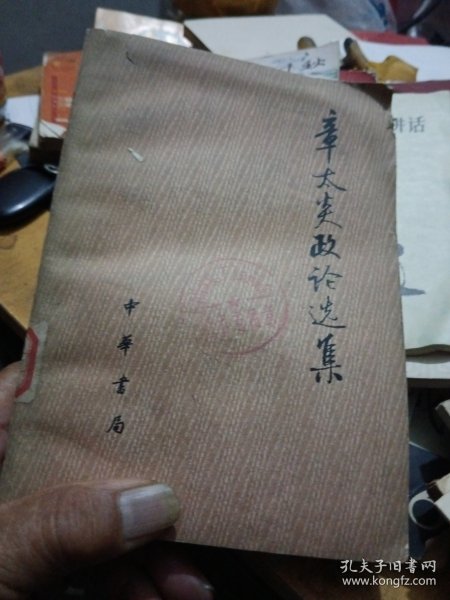 章太炎政论选集
中华书局
讲话
孔夫子旧书网
www.kongfz.com